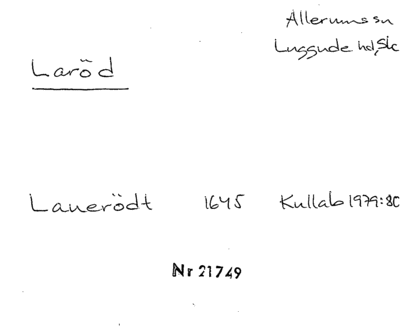 Allerums sn
Luggude hd, Sk
Laröd
Lauerödt 1645 Kullab 1979:80
Nr 21749